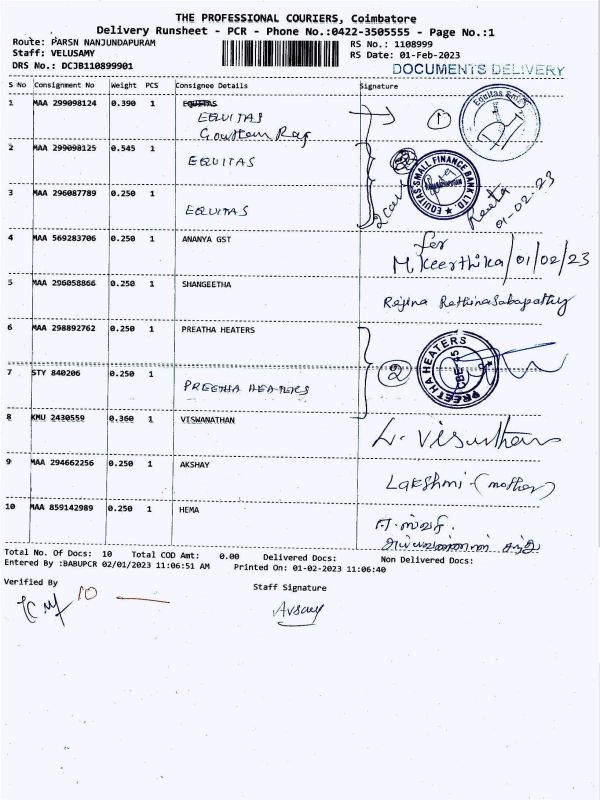 THE PROFESSIONAL COURIERS, Coimbatore
Delivery Runsheet - PCR - Phone No.:0422-3505555 - Page No.:1
Route: PARSN NANJUNDAPURAM
RS No.: 1108999
Staff: VELUSAMY
RS Date: 01-Feb-2023
DRS No.: DCJB110899901
DOCUMENTS DELIVERY
S No Consignment No Weight PCS Consignee Details Signature
1 MAA 299098124 0.390 1 EQUITAS
EQUITAS
Gowtam Raj
1
Equitas
2 MAA 299098125 0.545 1 EQUITAS
EQUITAS SMALL FINANCE BANK LTD.
3 MAA 296087789 0.250 1 EQUITAS
Reeta
01-02-23
4 MAA 569283706 0.250 1 ANANYA GST
for
M. Keerthika/01/02/23
5 MAA 296058866 0.250 1 SHANGEETHA
Rejina Rethinasabapathy
6 MAA 298892762 0.250 1 PREATHA HEATERS
PREETHA HEATERS
CBE-45
2
7 STY 840206 0.250 1 PREETHA HEATERS
8 KMU 2430559 0.360 1 VISWANATHAN
9 MAA 294662256 0.250 1 AKSHAY
Lakshmi-(mother)
10 MAA 859142989 0.250 1 HEMA
Total No. Of Docs: 10 Total COD Amt: 0.00 Delivered Docs: Non Delivered Docs:
Entered By :BABUPCR 02/01/2023 11:06:51 AM Printed On: 01-02-2023 11:06:40
Verified By
Staff Signature
10